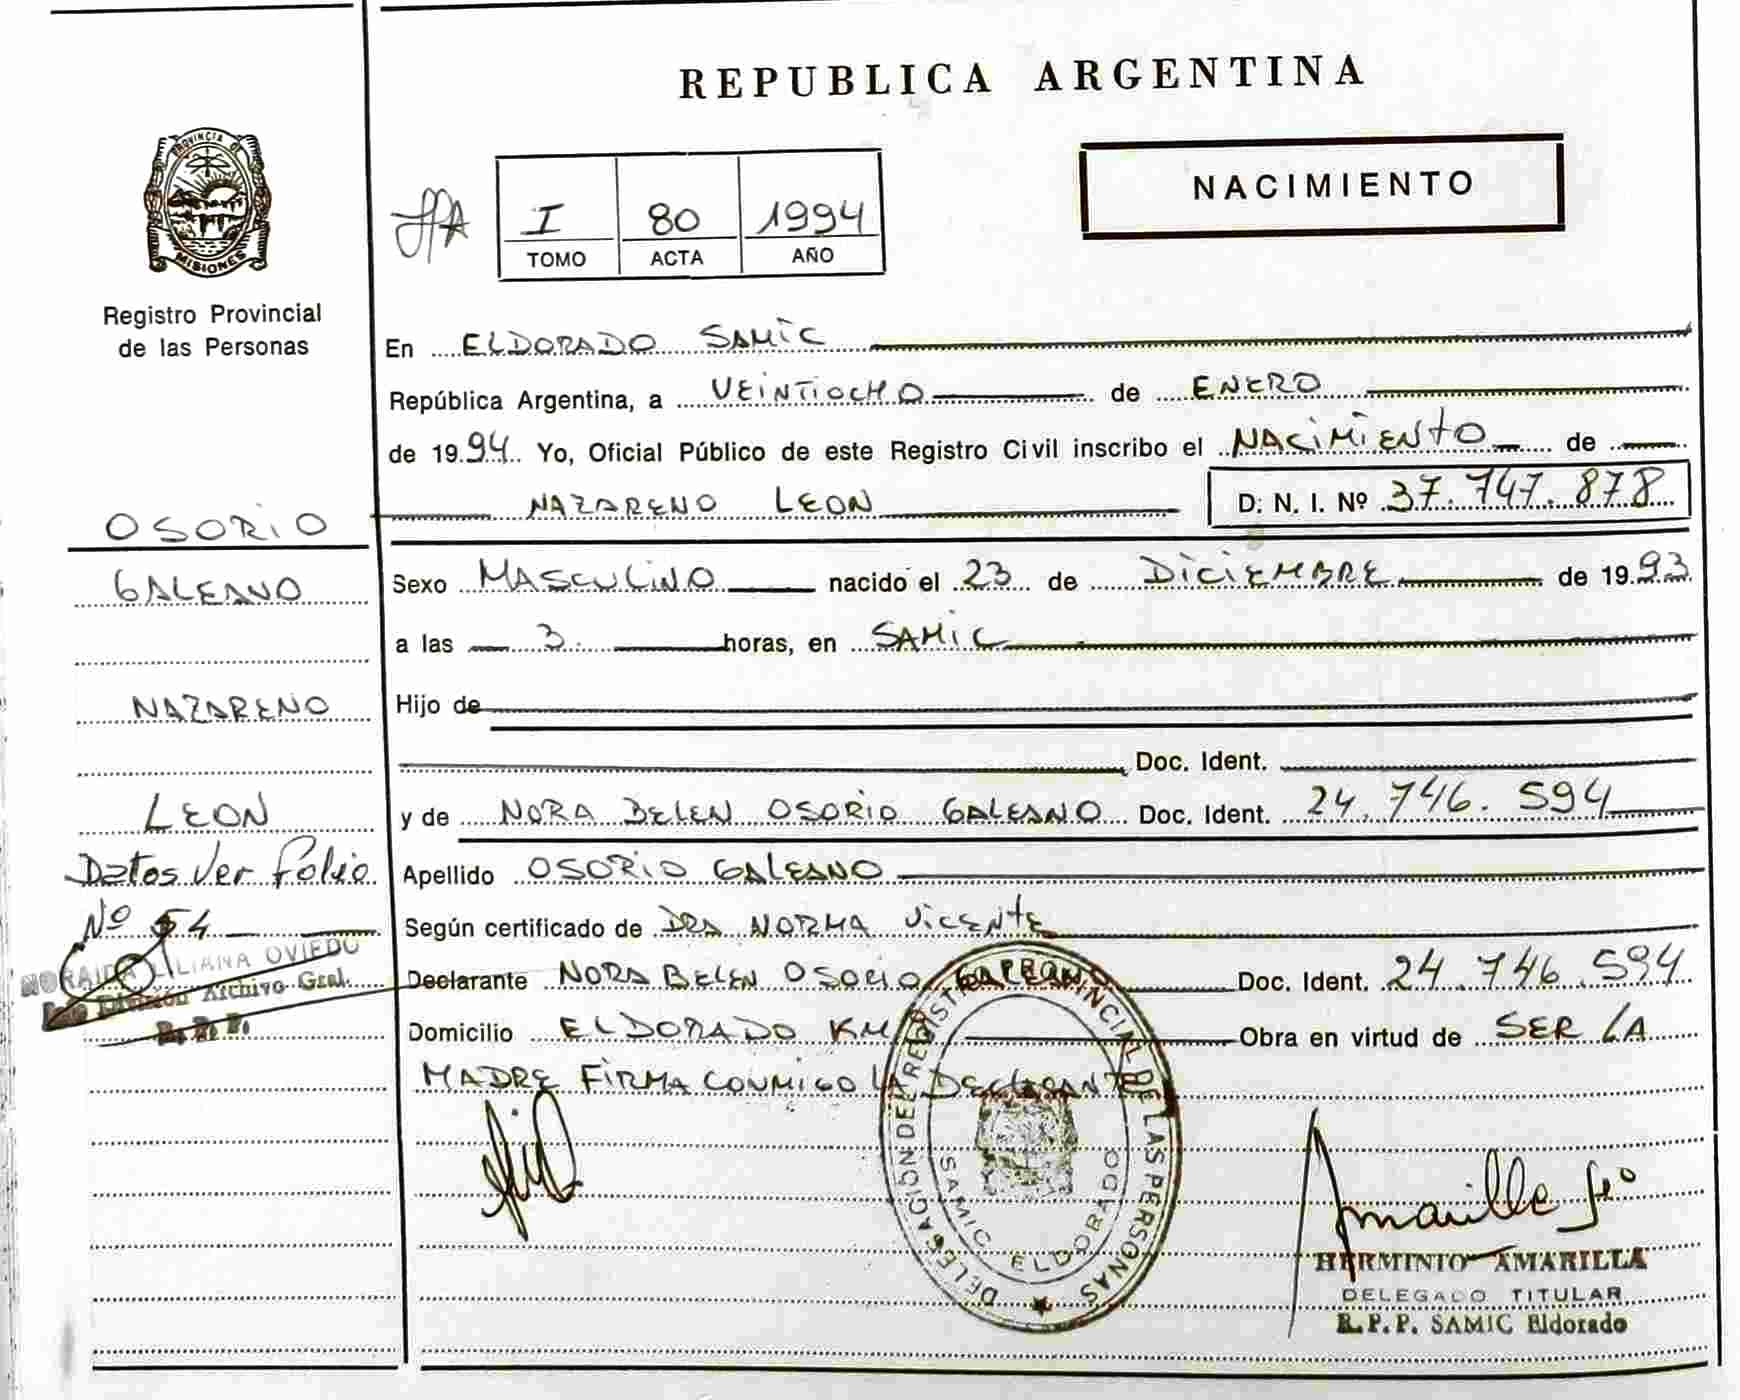 REPUBLICA ARGENTINA
PROVINCIA DE
MISIONES
Registro Provincial
de las Personas
I 80 1994
TOMO ACTA AÑO
NACIMIENTO
En ELDORADO SAMIC
República Argentina, a VEINTIOCHO de ENERO
de 1994. Yo, Oficial Público de este Registro Civil inscribo el NACIMIENTO de
NAZARENO LEON D. N. I. Nº 37.747.878
OSORIO
GALEANO
NAZARENO
LEON
Datos Ver folio
Nº 54
LILIANA OVIEDO
División Archivo Gral.
R. P. P.
Sexo MASCULINO nacido el 23 de DICIEMBRE de 1993
a las 3 horas, en SAMIC
Hijo de
Doc. Ident.
y de NORA BELEN OSORIO GALEANO Doc. Ident. 24.746.594
Apellido OSORIO GALEANO
Según certificado de DRA NORMA VICENTE
Declarante NORA BELEN OSORIO GALEANO Doc. Ident. 24.746.594
Domicilio ELDORADO KM Obra en virtud de SER LA
MADRE FIRMA CONMIGO LA DECLARANTE
DELEGACIÓN DEL REGISTRO PROVINCIAL DE LAS PERSONAS
SAMIC ELDORADO
Amarilla
HERMINIO AMARILLA
DELEGADO TITULAR
R.P.P. SAMIC Eldorado